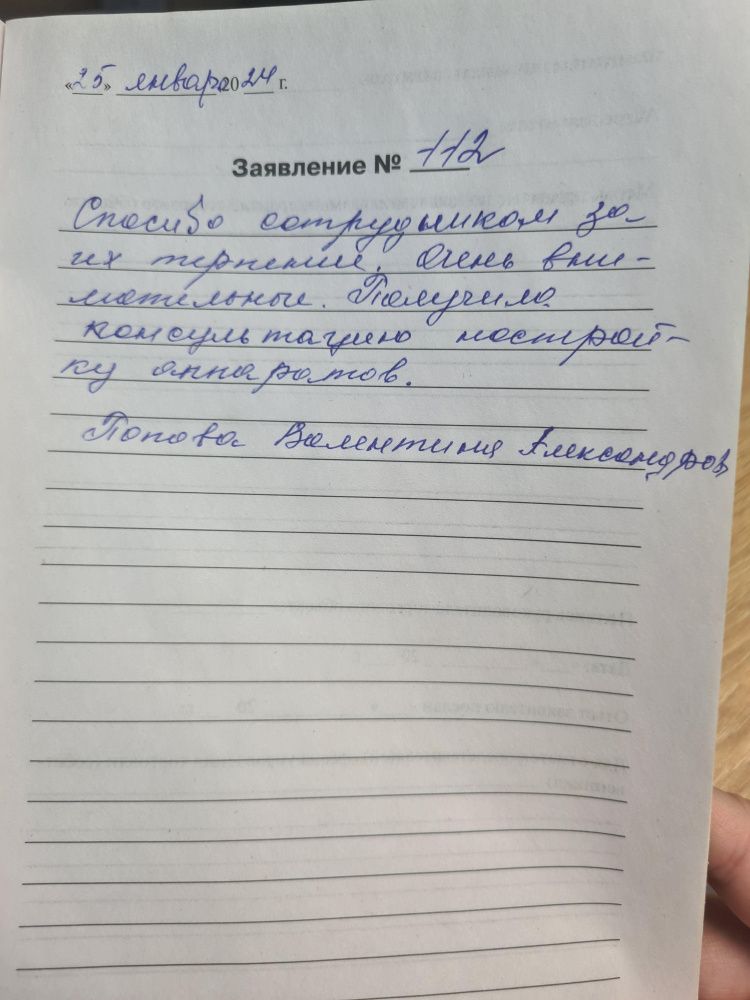 «25» января 2024 г.
Заявление № 112
Спасибо сотрудником за
их терпение. Очень вни-
мательные. Получила
консультацию настрой-
ку аппаратов.
Попова Валентина Александров